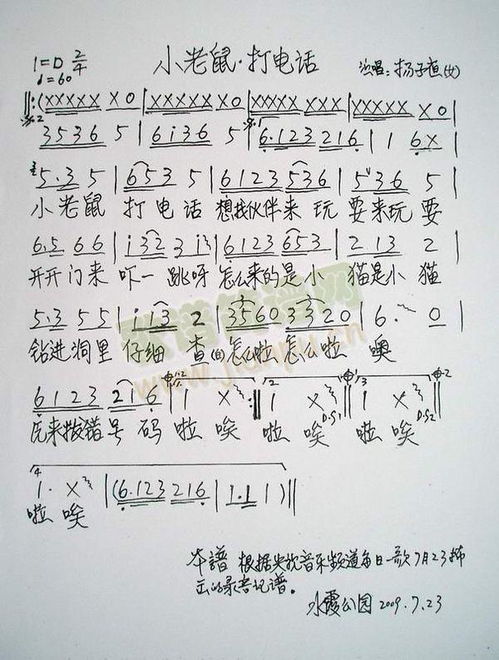 1=D 2/4
♩=60
小老鼠·打电话
演唱:杨子直(女)
‖:(XXXXX XO|XXXXX XO|XXXXX XXX|XXXXX XO|
3536 5|6i36 5|6.123 216|1 6X|
5.3 5|653 5|6123 536|536 5|
小老鼠 打电话 想找伙伴来玩 耍来玩耍
6.5 66|i323 i3|6123 653|213 2|
开开门来 吓一跳呀 怎么来的是小 猫是小猫
5.3 55|i13 2|3560 3320|6. 0|
钻进洞里 仔细查 的怎么啦 怎么啦 噢
6123 216|1 X:‖1 X‖1 X‖
原来拨错号码 啦唉 啦唉 啦唉
1. X|(6.123 216|1.1 1)‖
啦唉
本譜根据央视音乐频道每日一歌7月23播
出的录音记谱。
水霞公园 2009.7.23